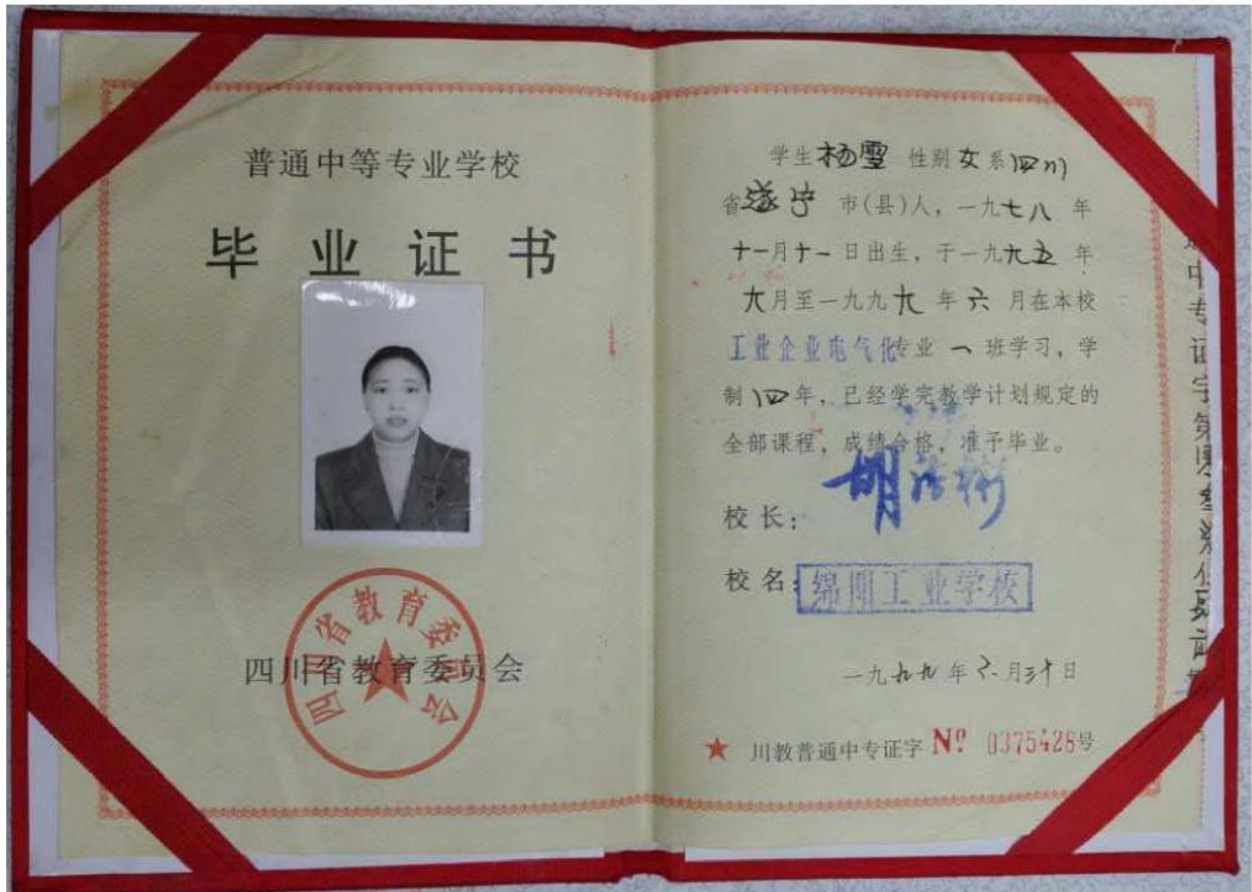 普通中等专业学校
毕业证书
四川省教育委员会
四川省教育委员会
学生杨雪 性别女系四川
省遂宁 市(县)人，一九七八 年
十一月十一日出生，于一九九五 年
九月至一九九九 年 六 月在本校
工业企业电气化专业 一 班学习，学
制四年，已经学完教学计划规定的
全部课程，成绩合格，准予毕业。
校长：
校名：绵阳工业学校
一九九九年六月三十日
★ 川教普通中专证字 Nº 0375428号
中专证字第